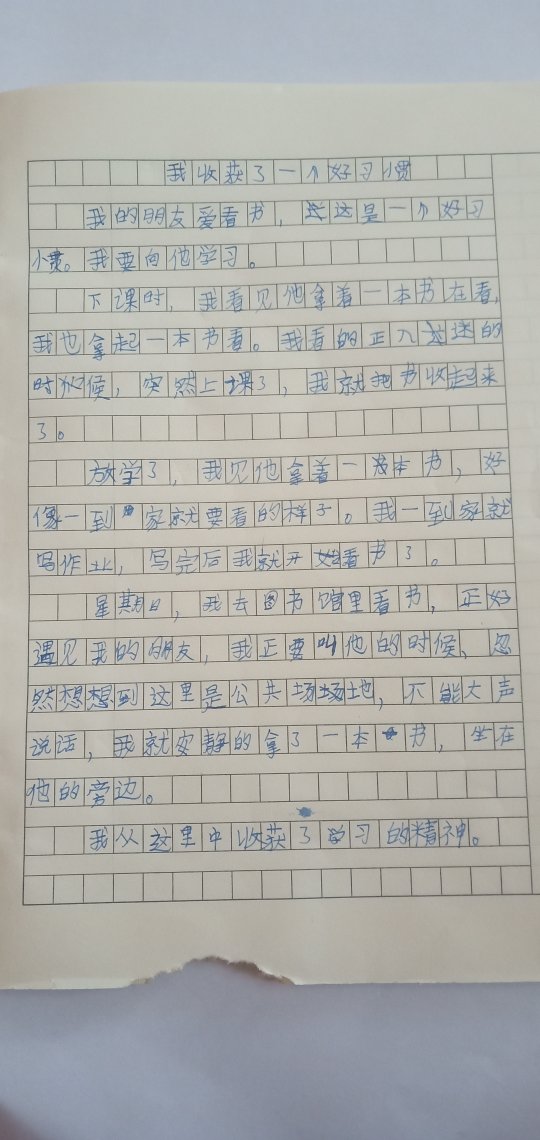 我收获了一个好习惯
我的朋友爱看书，这是一个好习
惯。我要向他学习。
下课时，我看见他拿着一本书在看，
我也拿起一本书看。我看的正入迷的
时候，突然上课了，我就把书收起来
了。
放学了，我见他拿着一本书，好
像一到家就要看的样子。我一到家就
写作业，写完后我就开始看书了。
星期日，我去图书馆里看书，正好
遇见我的朋友，我正要叫他的时候，忽
然想想到这里是公共场场地，不能大声
说话，我就安静的拿了一本书，坐在
他的旁边。
我从这里中收获了学习的精神。